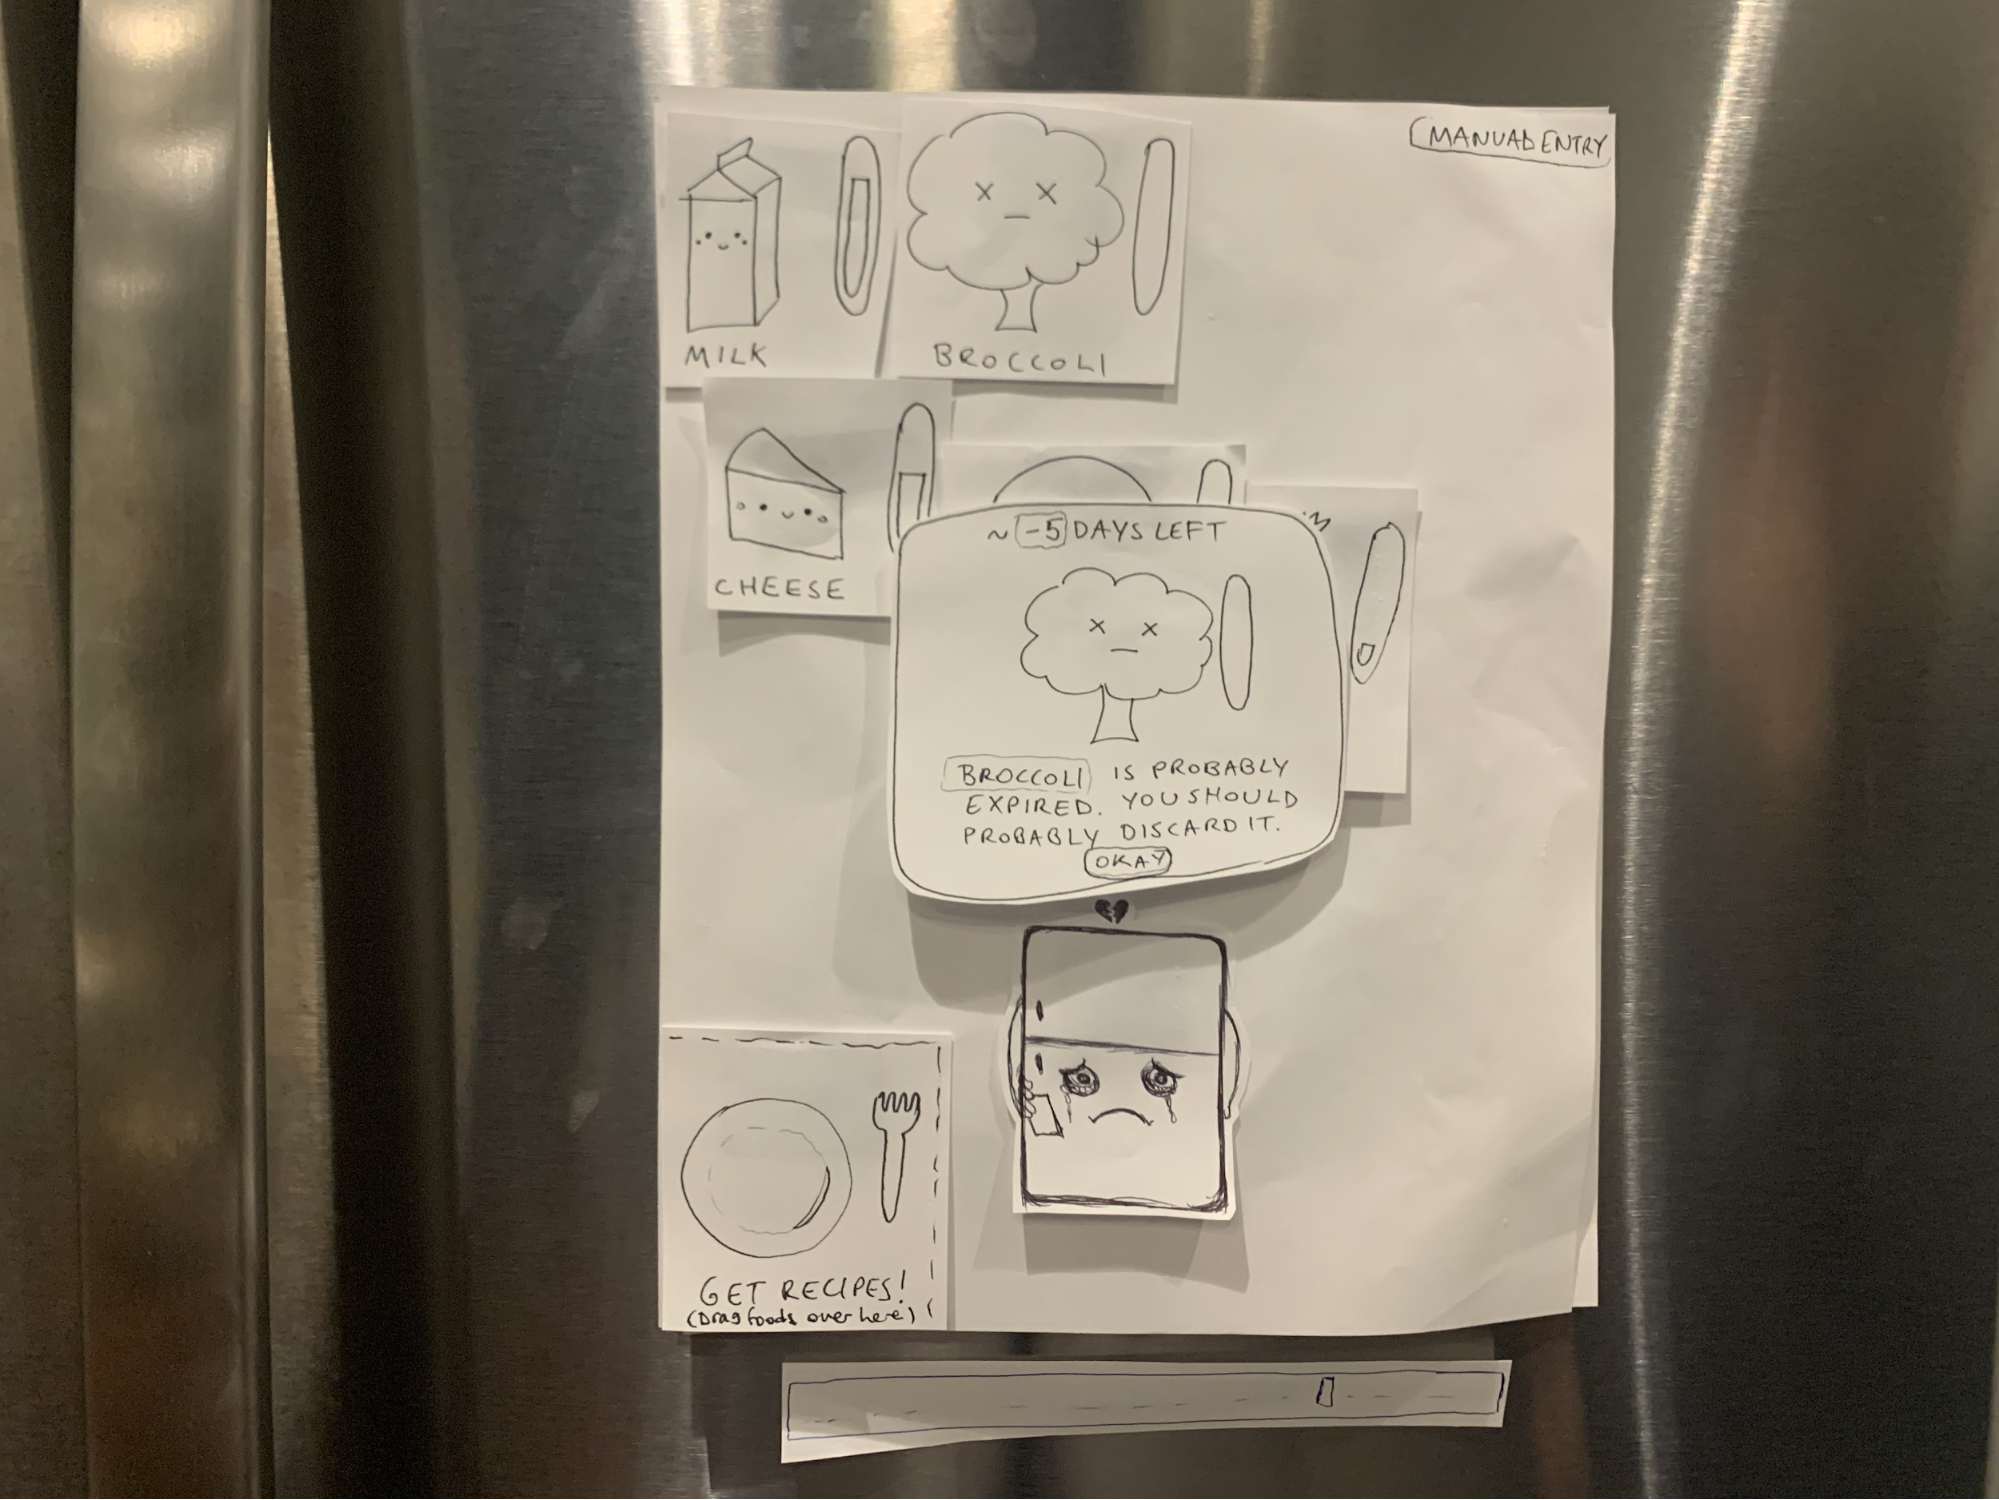 MANUAL ENTRY
MILK
BROCCOLI
CHEESE
~ -5 DAYS LEFT
BROCCOLI IS PROBABLY
EXPIRED. YOU SHOULD
PROBABLY DISCARD IT.
OKAY
GET RECIPES!
(Drag foods over here)